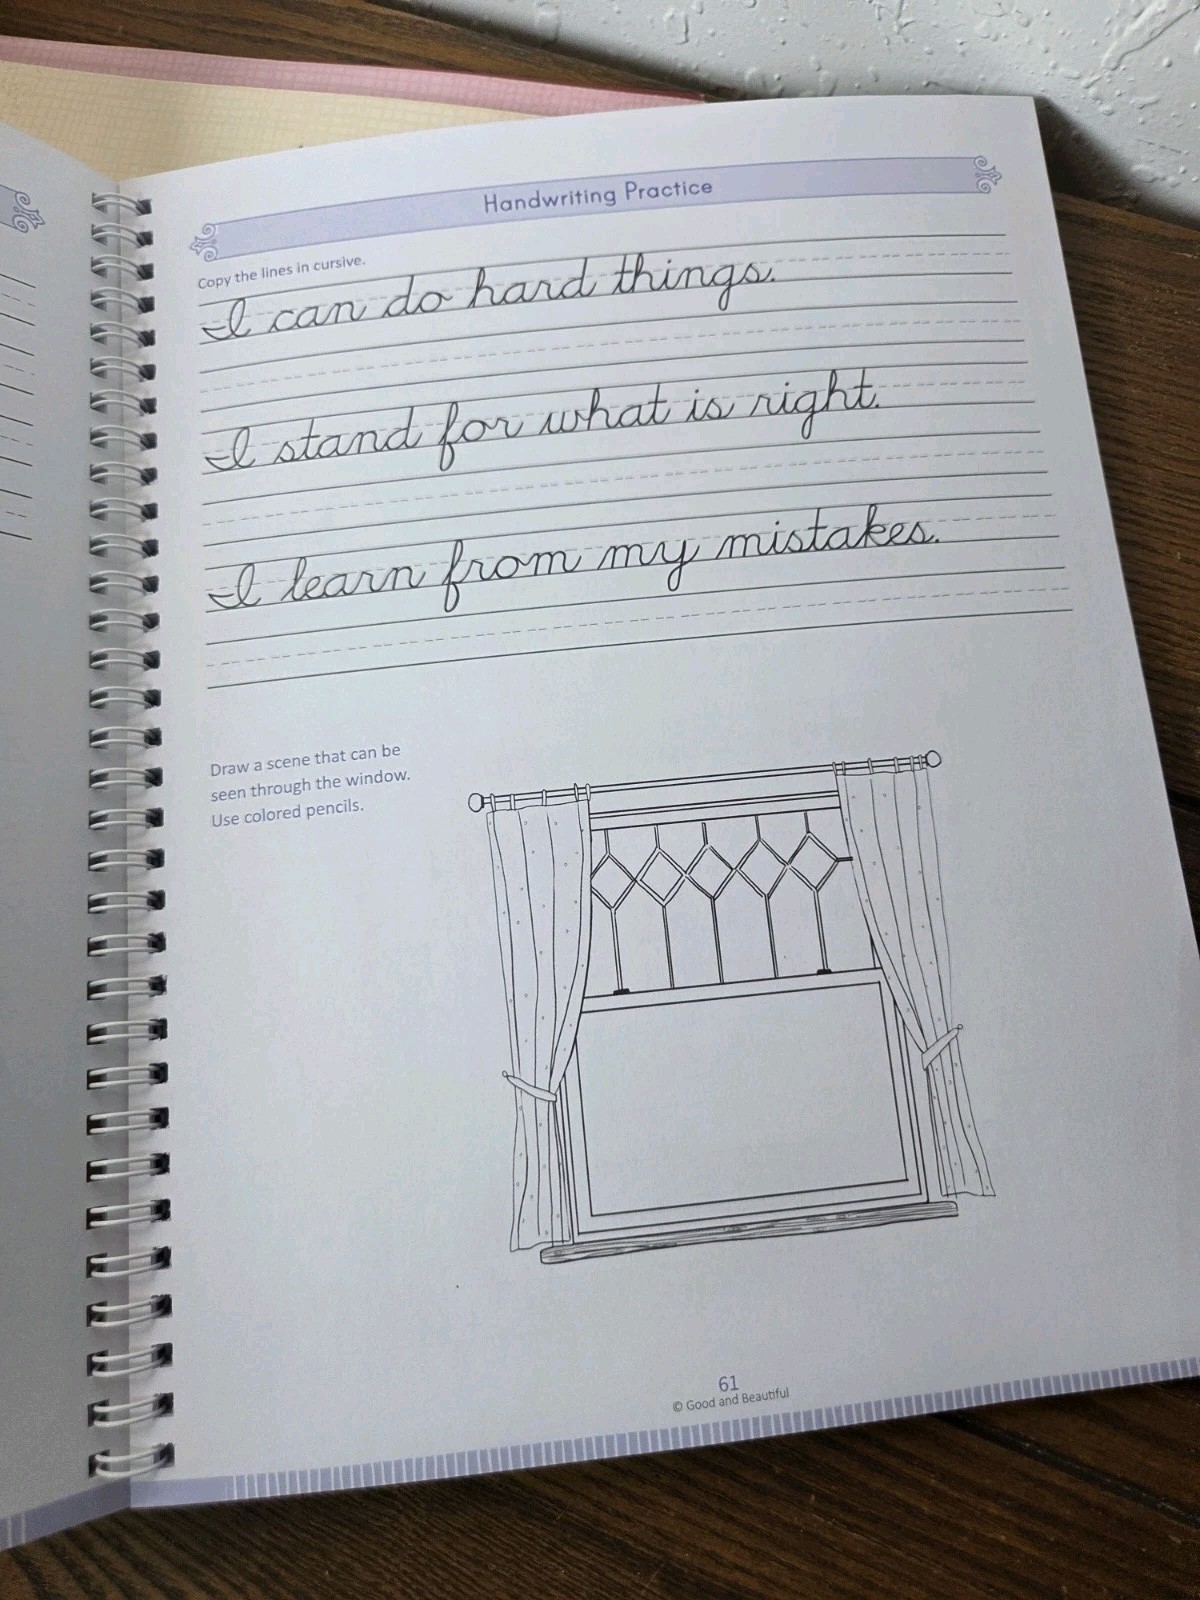 Handwriting Practice
Copy the lines in cursive.
I can do hard things.
I stand for what is right.
I learn from my mistakes.
Draw a scene that can be
seen through the window.
Use colored pencils.
61
© Good and Beautiful